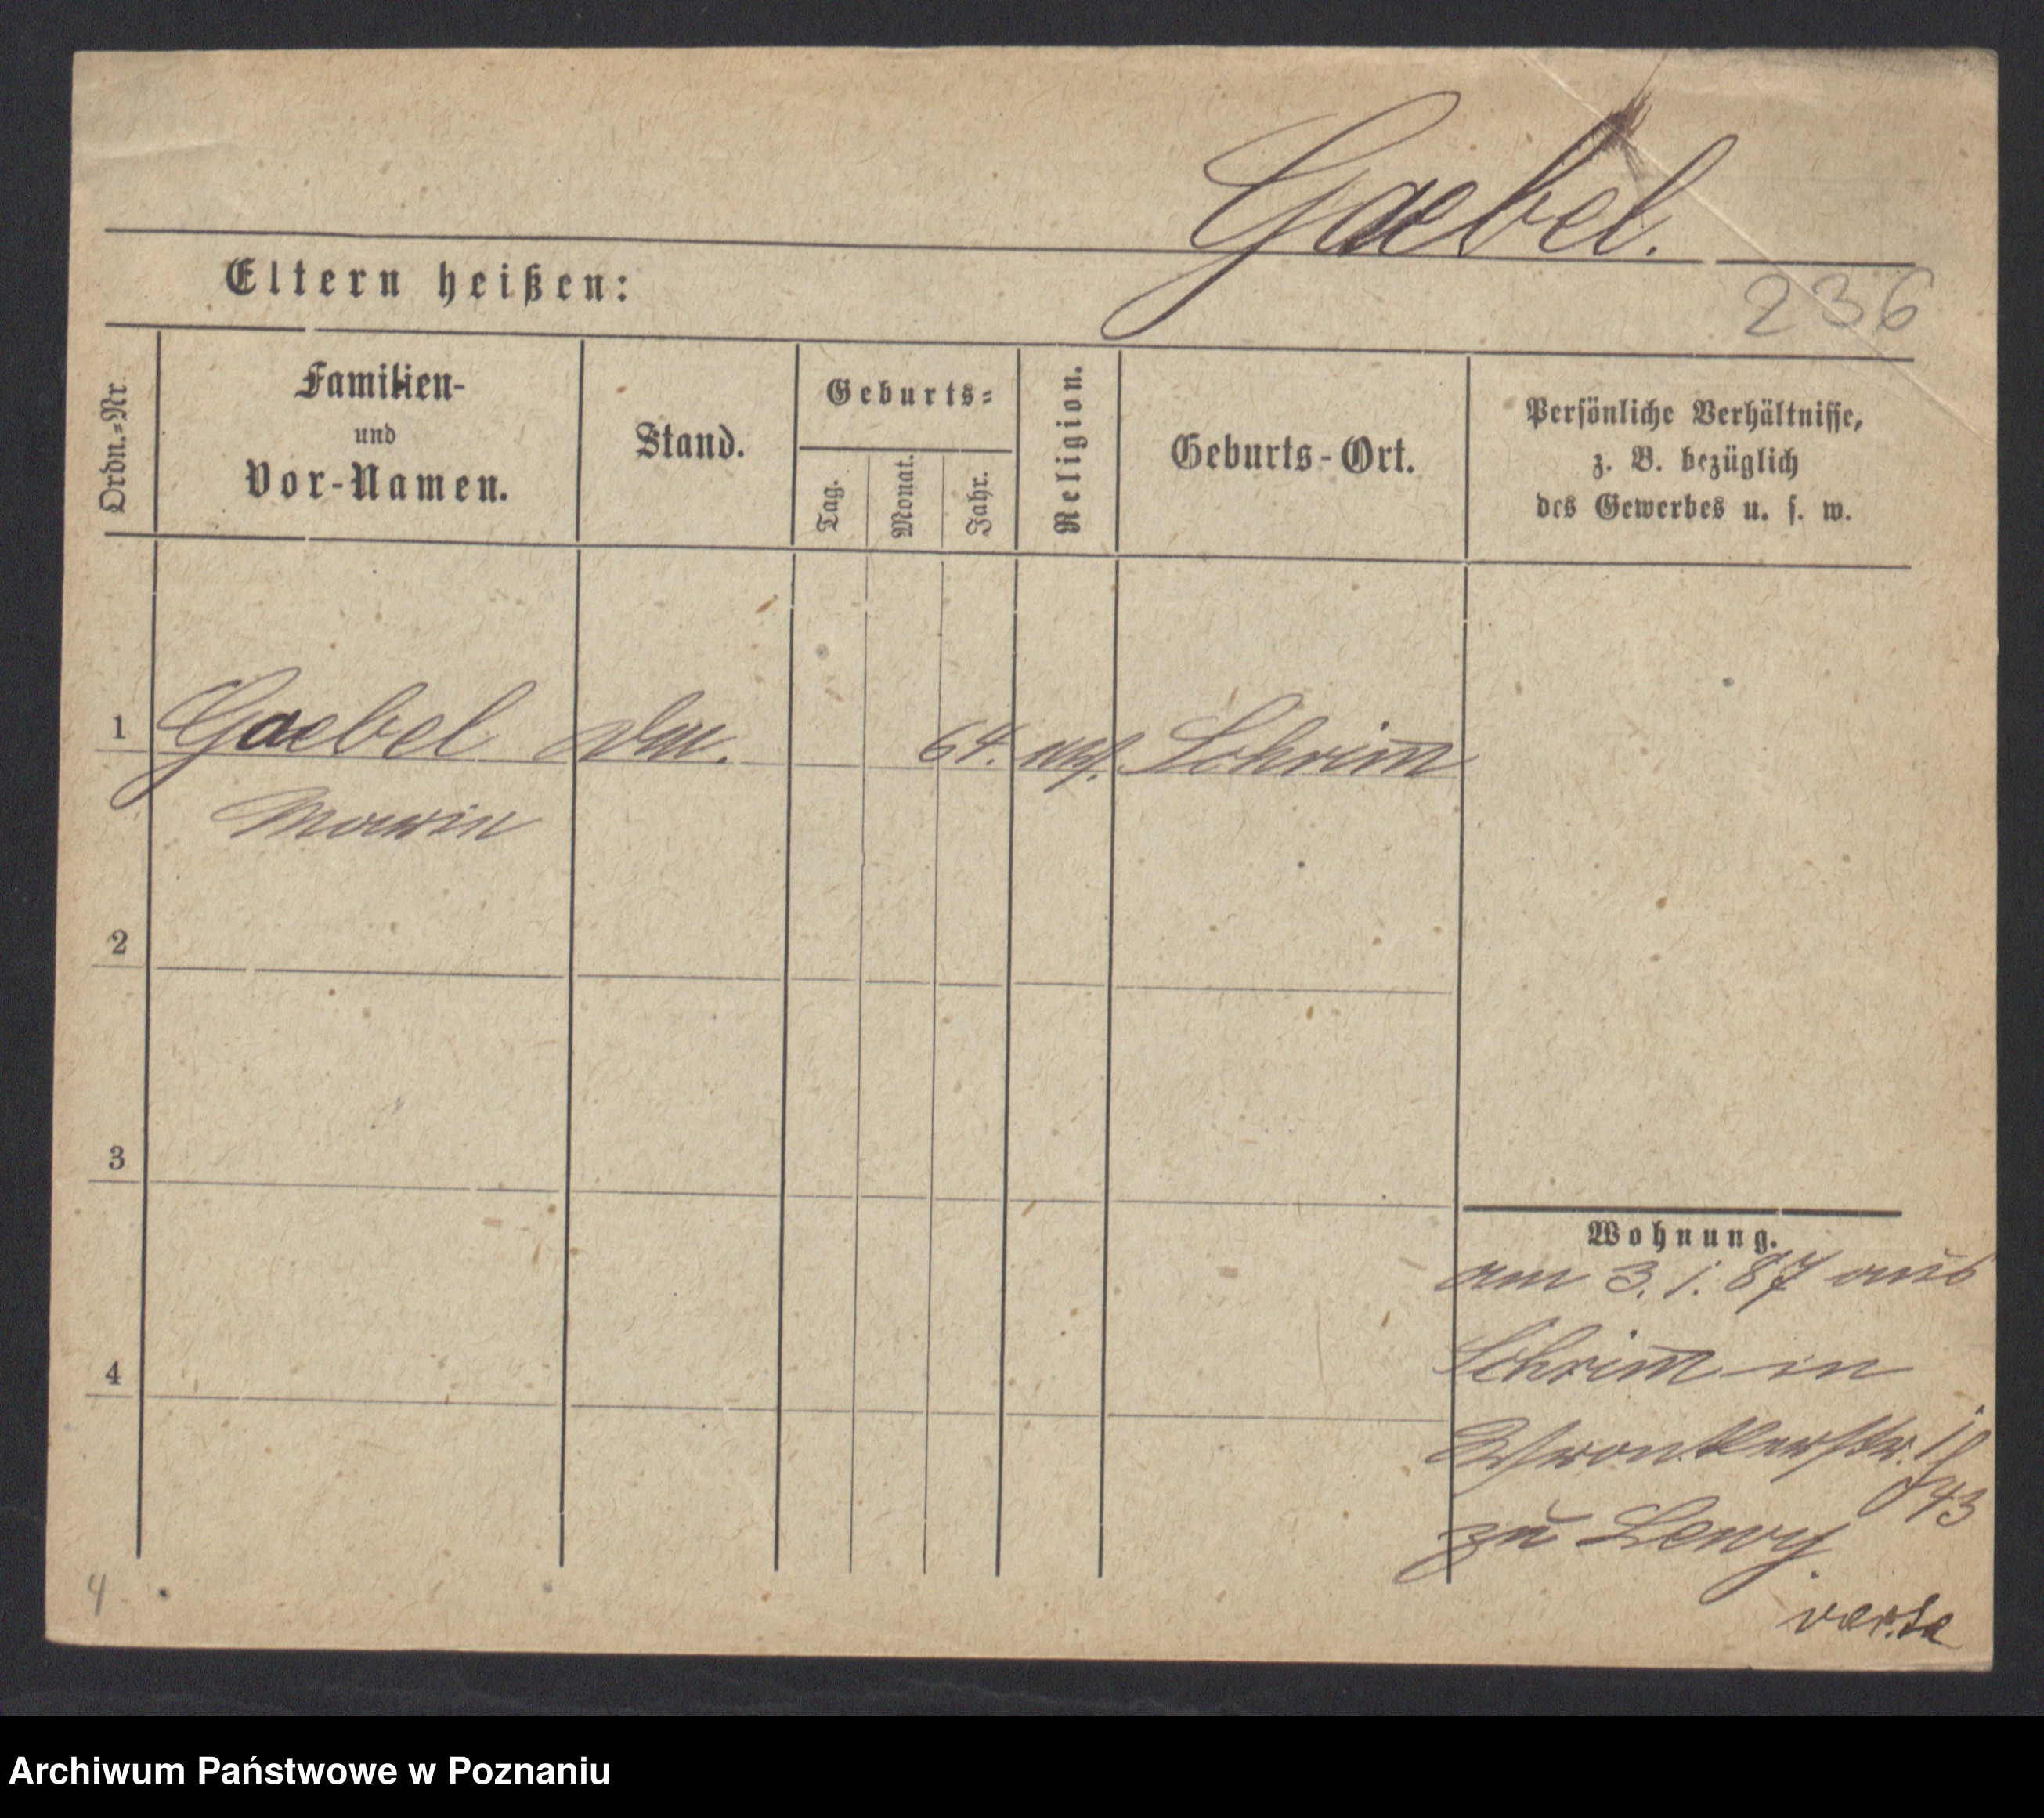 Gaebel.
Eltern heißen:
236
Ordn.=Nr.
Familien-
und
Vor-Namen.
Stand.
Geburts=
Tag.
Monat.
Jahr.
Religion.
Geburts-Ort.
Persönliche Verhältnisse,
z. B. bezüglich
des Gewerbes u. s. w.
1 Gaebel 64. Schrim̄
2
3
4
Wohnung.
am 3. 1. 87 aus
Schrim̄ in
Wronkerstr.
zu Lewy
4
Archiwum Państwowe w Poznaniu